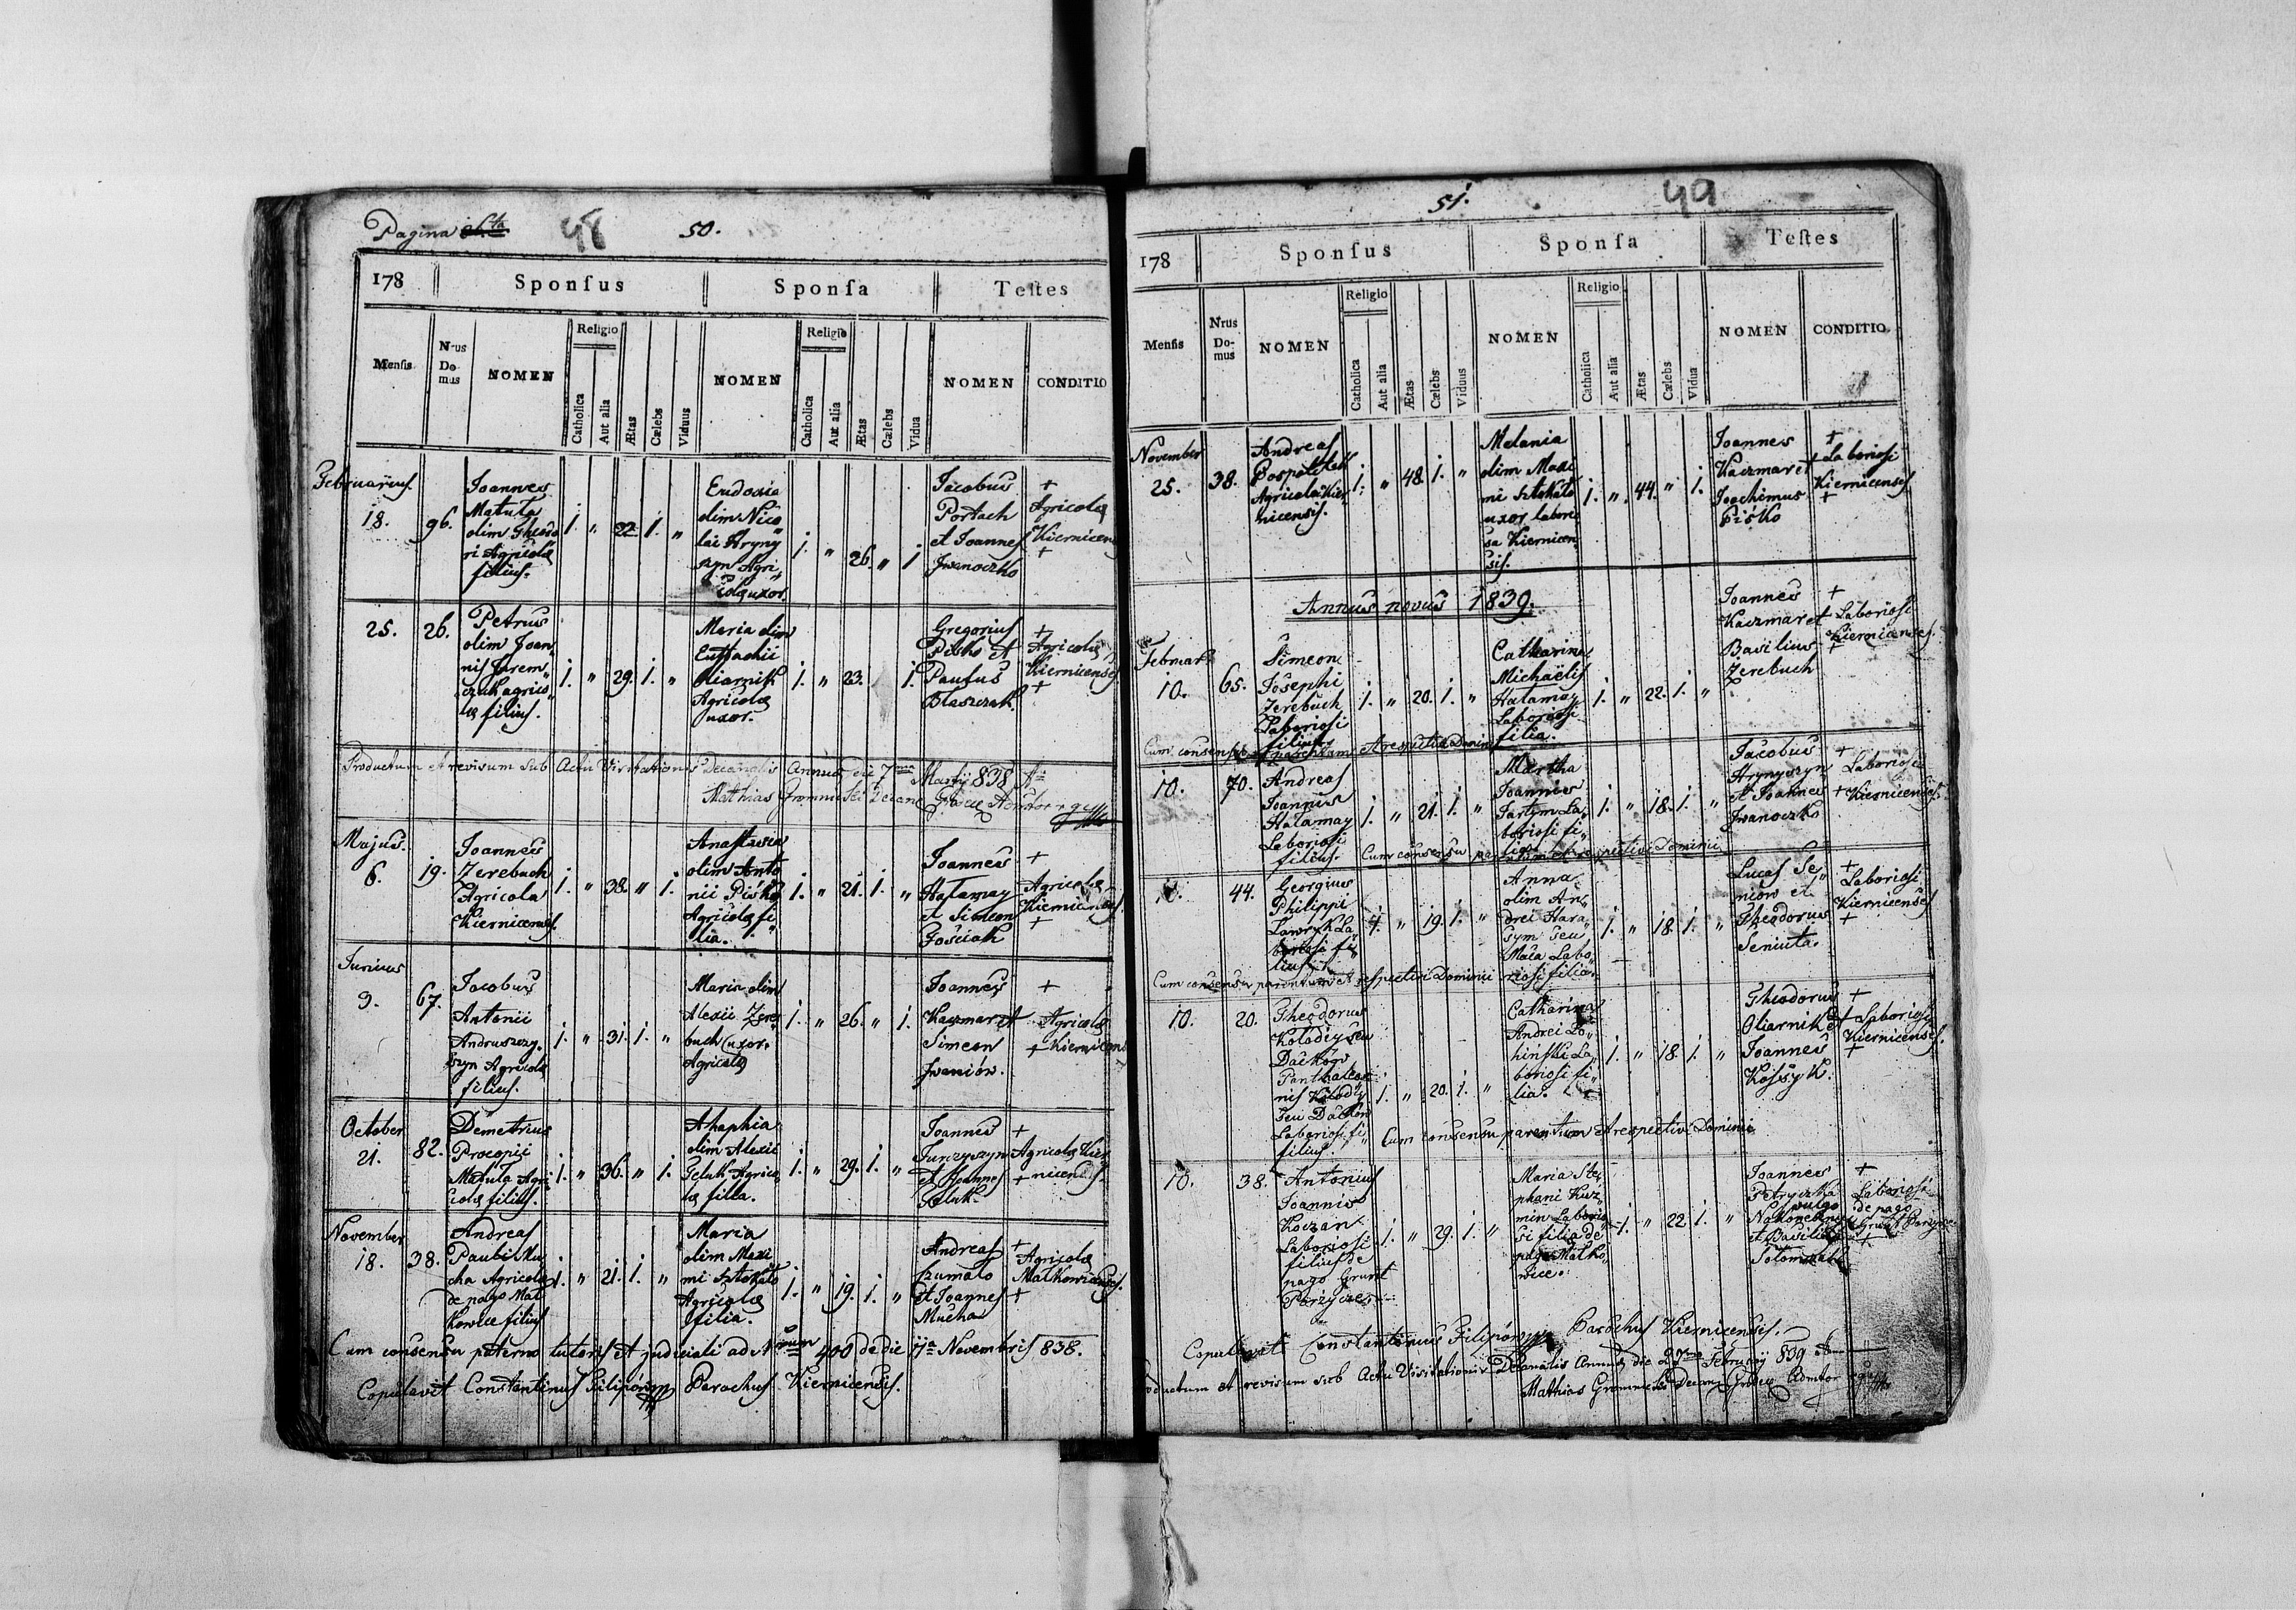 Pagina
48
50.
178 Sponſus Sponſa Teſtes
Menſis Nrus Domus NOMEN Religio Catholica Aut alia Ætas Cælebs Viduus NOMEN Religio Catholica Aut alia Ætas Cælebs Vidua NOMEN CONDITIO
Februarius
18. 96.
Joannes
Matuła
olim Theodo
ri Agricolæ
filius.
1. " 22. 1. "
Eudoxia
olim Nico
lai Hryny
szyn Agri
colæ uxor.
1. " 26. " 1
Jacobus
Portach
et Joannes
Iwanoczko
+
Agricolæ
Kiernicens
+
25. 26.
Petrus
olim Joan
nis Jarem
czuk agrico
læ filius.
1. " 29. 1. "
Maria olim
Eustachii
Oliarnik
Agricolæ
uxor.
1. " 23. 1.
Gregorius
Pisko et
Paulus
Błaszczak.
+
Agricolæ
Kiernicenses
+
Productum et revisum sub Actu Visitationis Decanalis Annuæ die 7ma Martij 838
Mathias
Majus.
6. 19.
Joannes
Zerebuch
Agricola
Kiernicensis.
1. " 38. " 1.
Anastasia
olim Anto
nii Piśko
Agricolæ fi
lia.
1. " 21. 1. "
Joannes
Hałamay
et Simeon
Jościak
+
Agricolæ
Kiernicenses
+
Junius
9. 67.
Jacobus
Antonii
Andruszczy
szyn Agricolæ
filius.
1. " 31. 1. "
Maria olim
Alexii Zere
buch uxor
Agricolæ
1. " 26. " 1.
Joannes
Kaczmar et
Simeon
Iwaniów.
+
Agricolæ
+ Kiernicens
October
21. 82.
Demetrius
Procopii
Matuła Agri
colæ filius.
1. " 36. " 1.
Ahaphia
olim Alexii
Feluk Agrico
læ filia.
1. " 29. 1. "
Joannes
Jurczyszyn
et Joannes
Feluk.
+
Agricolæ Kier
+ nicenses.
November
18. 38.
Andreas
Pauli Mu
cha Agricolæ
de pago Mal
kowice filius
1. " 21. 1. "
Maria
olim Maxi
mi Sztokało
Agricolæ
filia.
1. " 19. 1. "
Andreas
Szumało
et Joannes
Mucha
+
Agricolæ
Malkowicenses.
+
Cum consensu paterno tutoris et judiciali ad Nrum 400 de die 11a Novembris 838.
Copulavit Constantinus Filipów Parochus Kiernicensis.
51.
49
178 Sponſus Sponſa Teſtes
Menſis Nrus Domus NOMEN Religio Catholica Aut alia Ætas Cælebs Viduus NOMEN Religio Catholica Aut alia Ætas Cælebs Vidua NOMEN CONDITIO
November
25. 38.
Andreas
Pospolitak
Agricola Kier
nicensis.
1. " 48. 1. "
Melania
olim Maxi
mi Sztokało
uxor laborio
sa Kiernicen
sis.
1. " 44. " 1.
Joannes
Kaczmar et
Joachimus
Piśko
+
Laboriosi
Kiernicenses
+
Annus novus 1839.
Februar
10. 65.
Simeon
Josephi
Zerebuch
Laboriosi
filius
1. " 20. 1. "
Catharina
Michaëlis
Hałamay
Laboriosi
filia.
1. " 22. 1. "
Joannes
Kaczmar et
Basilius
Zerebuch
+
Laboriosi
Kiernicenses.
+
Cum consensu parentum et respectivi Dominii
10. 70.
Andreas
Joannis
Hałamay
Laboriosi
filius.
1. " 21. 1. "
Martha
Joannis
Fartym La
boriosi fi
lia.
1. " 18. 1. "
Jacobus
Hrynyszyn
et Joannes
Iwanoczko
+
Laboriosi
+ Kiernicenses.
Cum consensu parentum et respectivi Dominii
10. 44.
Georgius
Philippi
Ławryk La
boriosi fi
lius
1. " 19. 1. "
Anna
olim An
drei Hara
sym seu
Maca Labo
riosi filia.
1. " 18. 1. "
Lucas Se
niow et
Theodorus
Seniuta.
+
Laboriosi
Kiernicenses
+
Cum consensu parentum et respectivi Dominii
10. 20.
Theodorus
Kołodiy seu
Dacków
Panthaleo
nis Kołodiy
seu Dacków
Laboriosi fi
filius.
1. " 20. 1. "
Catharina
Andrei Ło
hinski La
boriosi fi
lia.
1. " 18. 1. "
Theodorus
Oliarnik et
Joannes
Kossyk.
+
Laboriosi
Kiernicenses.
+
Cum consensu parentum et respectivi Dominii
10. 38.
Antonius
Joannis
Koczan
Laboriosi
filius de
pago Grunt
1. " 29. 1. "
Maria Ste
phani Kuz
min Laborio
si filia de
pago Małko
wice.
1. " 22. 1. "
Joannes
Petryczka
et Basilius
+
Laboriosi
de pago
Grunt
+
Copulavit Constantinus Filipów Parochus Kiernicensis.
Productum et revisum sub Actu Visitationis Decanalis Annuæ die Februarij 839
Mathias